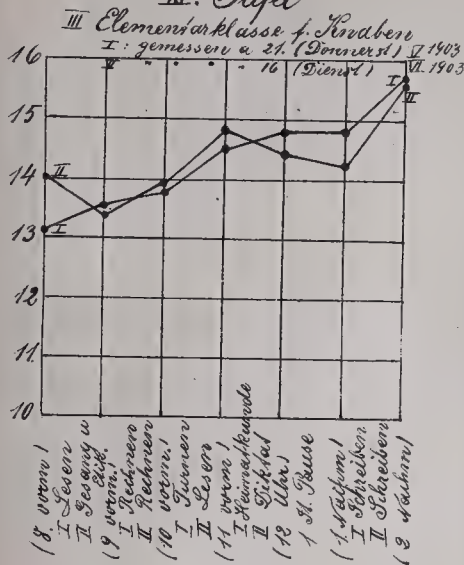 III. Tafel
III Elementarklasse f. Knaben
I : gemessen a 21. (Donnerst) V 1903
II " " " " 16 (Dienst) VI. 1903
16
15
14
13
12
11
10
I
II
II
I
(8. vorm!
I Lesen
II Gesang u
(9 vorm!
I Rechnen
II Rechnen
(10 vorm!
I Turnen
II Lesen
(11 vorm!
I Heimatkunde
II Diktat
(12 Uhr)
1 St. Pause
(1. Nachm!
I Schreiben
II Schreiben
(2 Nachm)